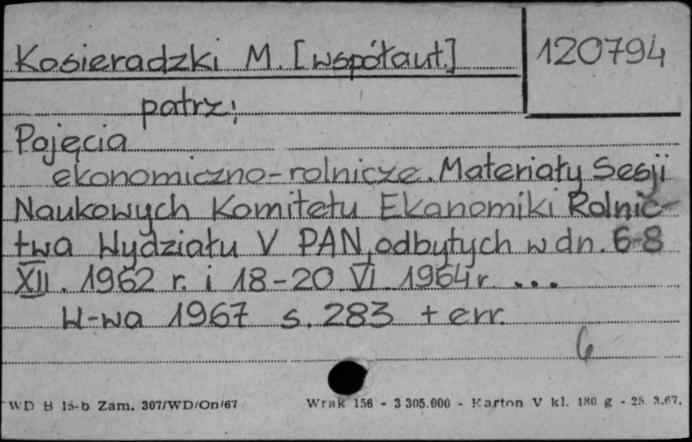 Kosieradzki M. [współaut.]
120794
patrz:
Pojęcia
ekonomiczno-rolnicze. Materiały Sesji
Naukowych Komitetu Ekonomiki Rolnic-
twa Wydziału V PAN, odbytych w dn. 6-8
XII. 1962 r. i 18-20 VI 1964 r. ...
W-wa 1967 s. 283 + err.
6
WD B 15-b Zam. 307/WD/On/67 Wrak 156 - 3 305.000 - Karton V kl. 180 g - 25. 3.67.